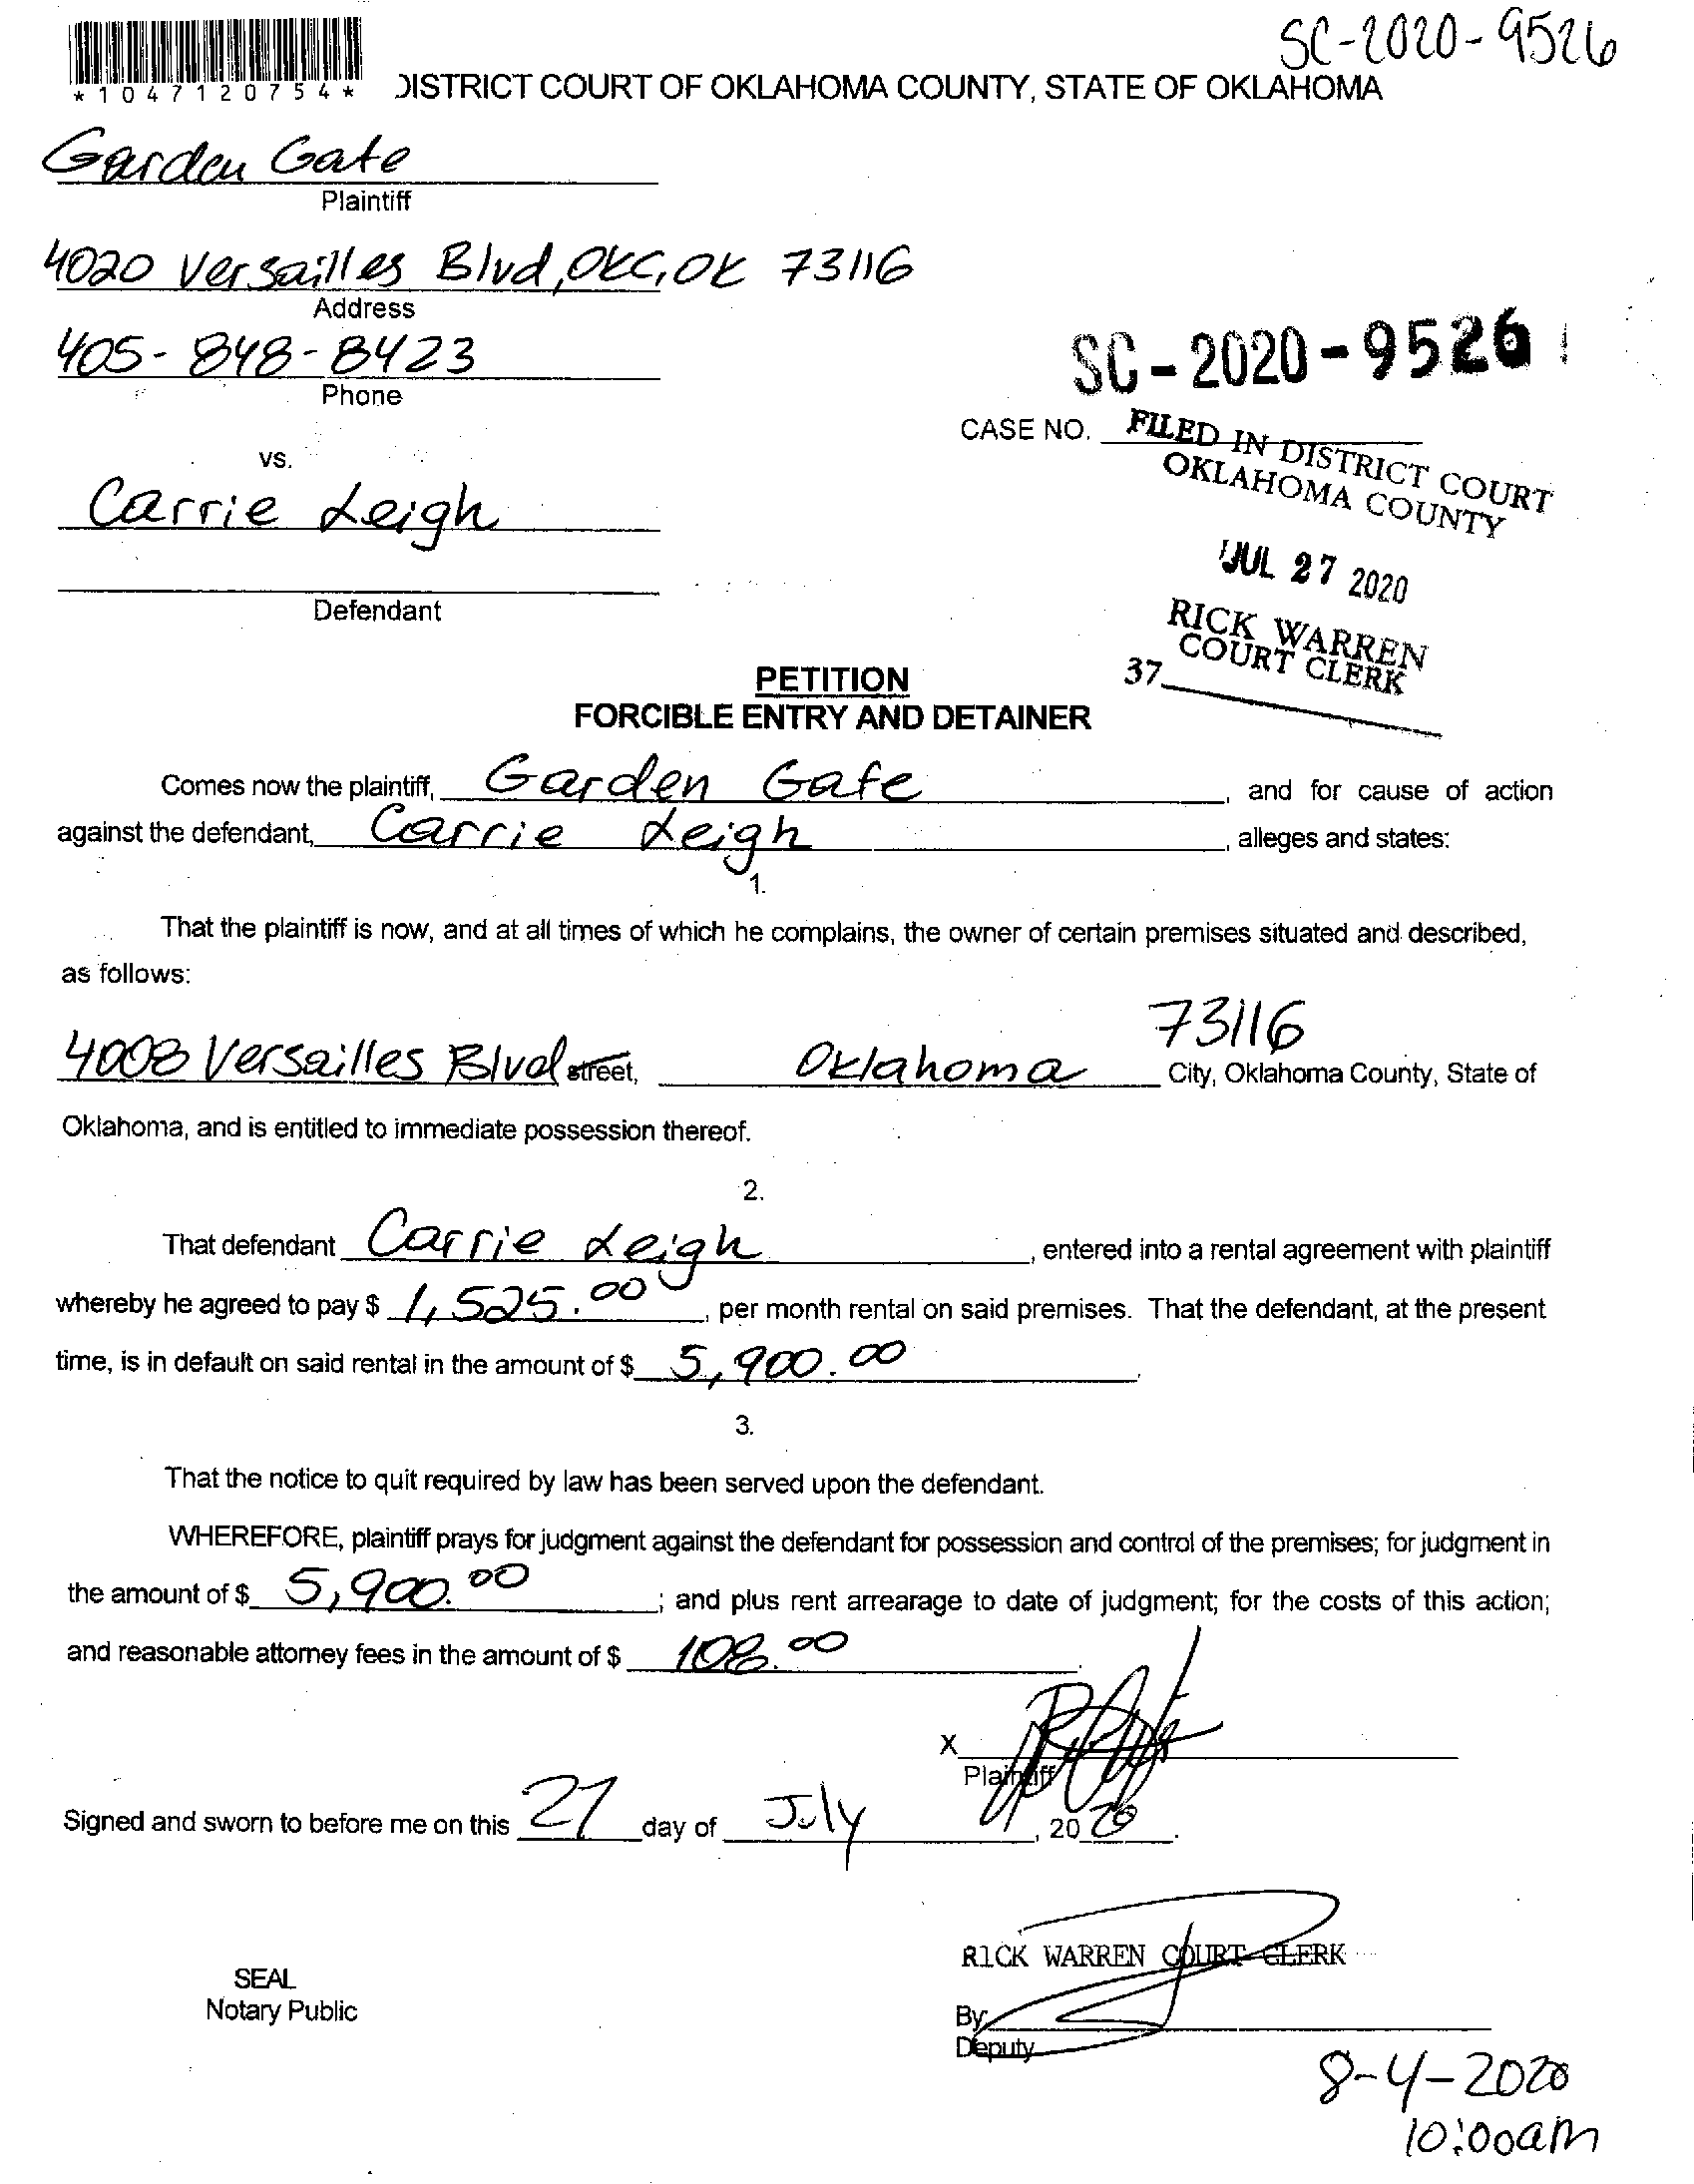 SC-2020-9526
*1047120754*
DISTRICT COURT OF OKLAHOMA COUNTY, STATE OF OKLAHOMA
Garden Gate
Plaintiff
4020 Versailles Blvd, OKC, OK 73116
Address
405-848-8423
Phone
SC-2020-9526
CASE NO.
FILED IN DISTRICT COURT
OKLAHOMA COUNTY
vs.
Carrie Leigh
JUL 27 2020
Defendant
RICK WARREN
COURT CLERK
37
PETITION
FORCIBLE ENTRY AND DETAINER
Comes now the plaintiff, Garden Gate, and for cause of action
against the defendant, Carrie Leigh, alleges and states:
1.
That the plaintiff is now, and at all times of which he complains, the owner of certain premises situated and described,
as follows:
73116
4008 Versailles Blvd street, Oklahoma City, Oklahoma County, State of
Oklahoma, and is entitled to immediate possession thereof.
2.
That defendant Carrie Leigh, entered into a rental agreement with plaintiff
whereby he agreed to pay $ 1,525.00, per month rental on said premises. That the defendant, at the present
time, is in default on said rental in the amount of $ 5,900.00.
3.
That the notice to quit required by law has been served upon the defendant.
WHEREFORE, plaintiff prays for judgment against the defendant for possession and control of the premises; for judgment in
the amount of $ 5,900.00; and plus rent arrearage to date of judgment; for the costs of this action;
and reasonable attorney fees in the amount of $ 108.00.
X
Plaintiff
Signed and sworn to before me on this 27 day of July, 2020.
RICK WARREN COURT CLERK
SEAL
Notary Public
By
Deputy
8-4-2020
10:00am